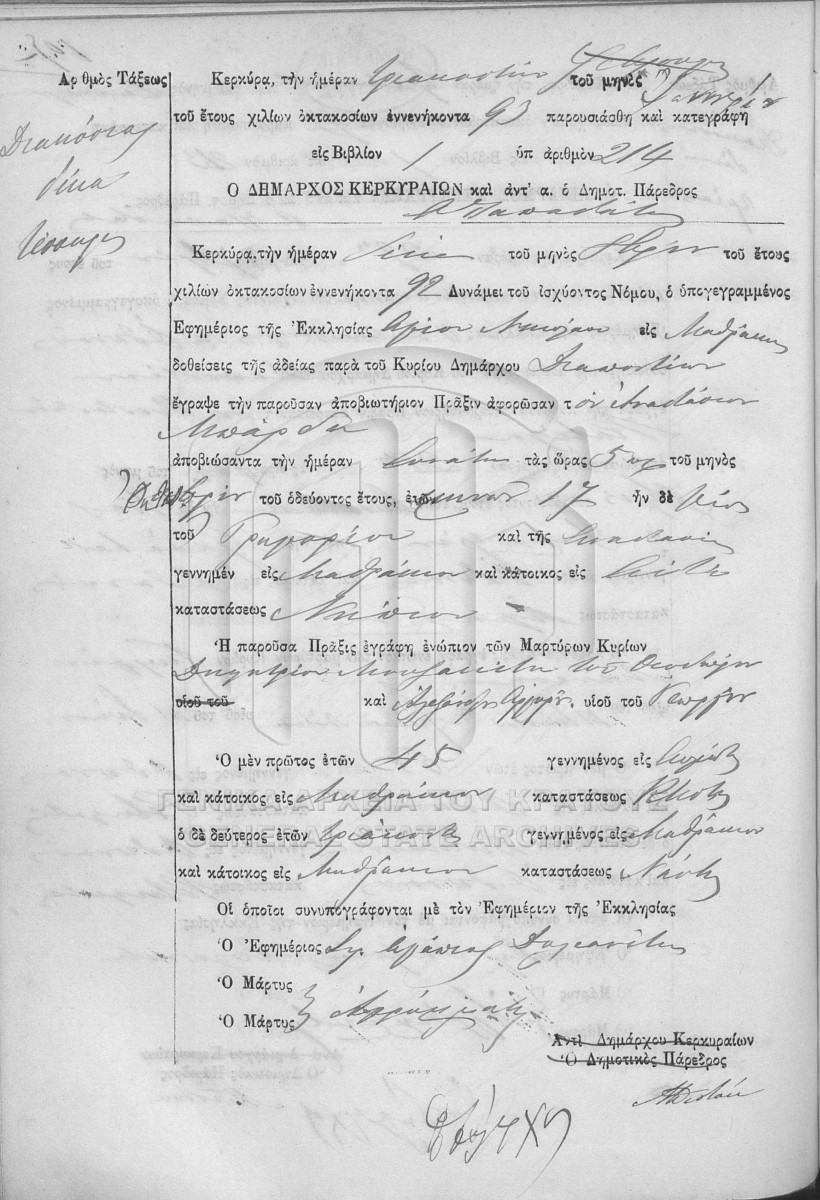 Αρ θμὸς Τάξεως
Διακόσια
δέκα
τέσσαρες
Κερκύρα, τὴν ἡμέραν τριακοστὴν τοῦ μηνὸς Ἰαννουαρίου
τοῦ ἔτους χιλίων ὀκτακοσίων ἐννενήκοντα 93 παρουσιάσθη καὶ κατεγράφη
εἰς Βιβλίον 1 ὑπ ἀριθμὸν 214
Ο ΔΗΜΑΡΧΟΣ ΚΕΡΚΥΡΑΙΩΝ καὶ ἀντ' α. ὁ Δημοτ. Πάρεδρος
Κερκύρα, τὴν ἡμέραν δέκα τοῦ μηνὸς τοῦ ἔτους
χιλίων ὀκτακοσίων ἐννενήκοντα 92 Δυνάμει τοῦ ἰσχύοντος Νόμου, ὁ ὑπογεγραμμένος
Ἐφημέριος τῆς Ἐκκλησίας Ἁγίου Νικολάου εἰς Μαθράκι
δοθείσεις τῆς ἀδείας παρὰ τοῦ Κυρίου Δημάρχου Διαποντίων
ἔγραψε τὴν παροῦσαν ἀποβιωτήριον Πρᾶξιν ἀφορῶσαν τ ὸν Ἀναστάσιον
Μπάρδη
ἀποβιώσαντα τὴν ἡμέραν ἐννάτη τὰς ὥρας 5 τοῦ μηνὸς
τοῦ ὁδεύοντος ἔτους, ἐτῶν μηνῶν 17 ἦν δὲ υἱὸς
τοῦ Γρηγορίου καὶ τῆς Ἀναστασίας
γεννημέν εἰς Μαθράκιον καὶ κάτοικος εἰς
καταστάσεως Νήπιον
Ἡ παροῦσα Πρᾶξις ἐγράφη ἐνώπιον τῶν Μαρτύρων Κυρίων
Δημητρίου Μουζακίτη τοῦ Θεοδώρου
υἱοῦ τοῦ καὶ Ἀλεξάνδρου Ἀργυρῆ υἱοῦ τοῦ Γεωργίου
Ὁ μὲν πρῶτος ἐτῶν 45 γεννημένος εἰς
καὶ κάτοικος εἰς Μαθράκιον καταστάσεως Κτίστης
ὁ δὲ δεύτερος ἐτῶν τριάκοντα γεννημένος εἰς Μαθράκιον
καὶ κάτοικος εἰς Μαθράκιον καταστάσεως Ναύτης
Οἱ ὁποῖοι συνυπογράφονται μὲ τὸν Ἐφημέριον τῆς Ἐκκλησίας
Ὁ Ἐφημέριος
Ὁ Μάρτυς
Ὁ Μάρτυς Ἀγράμματοι
Ἀντὶ Δημάρχου Κερκυραίων
Ὁ Δημοτικὸς Πάρεδρος
ΓΕΝΙΚΑ ΑΡΧΕΙΑ ΤΟΥ ΚΡΑΤΟΥΣ
GENERAL STATE ARCHIVES